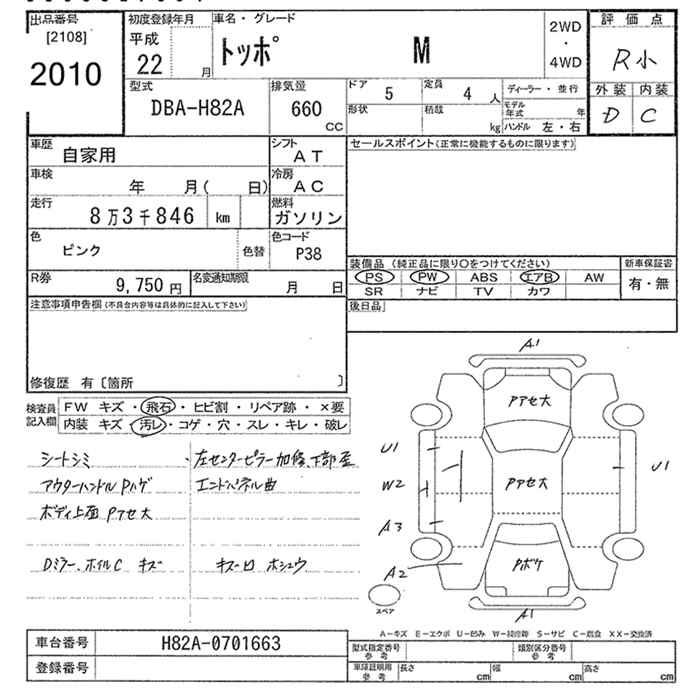 出品番号
[2108]
2010
初度登録年月
平成
22
月
車名・グレード
トッポ M
2WD
・
4WD
評価点
R小
外装 内装
D C
型式
DBA-H82A
排気量
660
CC
ドア 5
定員 4 人
形状
積載
kg
ディーラー・並行
モデル年式 年
ハンドル 左・右
車歴 自家用
シフト AT
車検 年 月( 日)
冷房 AC
走行 8万3千846 km
燃料 ガソリン
色 ピンク
色替
色コード P38
R券 9,750円
名変通知期限 月 日
セールスポイント(正常に機能するものに限ります)
装備品(純正品に限り○をつけてください)
新車保証書
PS PW ABS エアB AW
有・無
SR ナビ TV カワ
後日品
注意事項申告欄(不具合内容等は具体的に記入して下さい)
修復歴 有〔箇所 〕
検査員記入欄
FW キズ・飛石・ヒビ割・リペア跡・×要
内装 キズ・汚レ・コゲ・穴・スレ・キレ・破レ
シートシミ
・左センターピラー加修、下部歪
アウターハンドルPハゲ
エンドパネル曲
ボディ上面Pアセ大
Dミラー、ホイルC キズ
キズ一口 ホシュウ
A1
Pアセ大
U1
W2
A3
A2
Pアセ大
U1
Pボケ
A1
スペア
A-キズ E-エクボ U-凹み W-補修跡 S-サビ C-腐食 XX-交換済
車台番号 H82A-0701663
登録番号
型式指定番号 参考
類別区分番号 参考
車庫証明用 参考
長さ cm
幅 cm
高さ cm